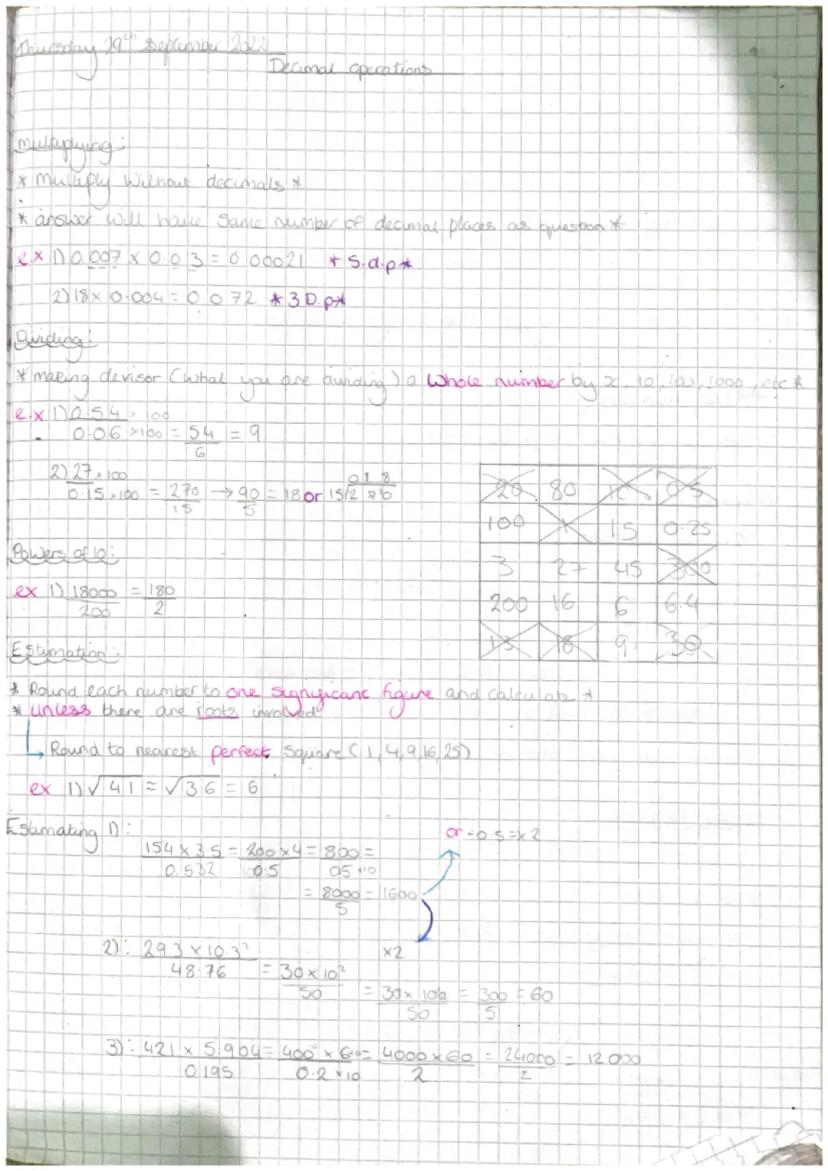 Thursday 29th September 2022
Decimal operations
Multiplying:
* multiply without decimals *
* answer will have same number of decimal places as question *
e.x 1) 0.007 × 0.03 = 0.00021 * 5.d.p *
2) 18 × 0.004 = 0.072 * 3 D.p *
Dividing:
* making devisor (what you are dividing) a whole number by x, 10, 100, 1000, etc *
e.x 1) 0.54 × 100
0.06 × 100 = 54/6 = 9
2) 27 × 100
0.15 × 100 = 270/15 → 90/5 = 18 or 15
20 80 0.5
100 1 15 0.25
3 27 45 300
200 16 6 6.4
18 9 30
Powers of 10:
ex 1) 18000/200 = 180/2
Estimation:
* Round each number to one significant figure and calculate *
* unless there are roots involved
Round to nearest perfect square (1, 4, 9, 16, 25)
ex 1) √41 ≈ √36 = 6
Estimating 1):
or ÷0.5 = ×2
154 × 3.5 / 0.532 = 200 × 4 / 0.5 = 800 / 0.5 ×10 =
= 8000/5 = 1600
×2
2): 29.3 × 10.3² / 48.76 = 30 × 10² / 50
= 30 × 100 / 50 = 300/5 = 60
3): 421 × 5.904 / 0.195 = 400 × 6 / 0.2 ×10 = 4000 × 60 / 2 = 24000/2 = 12000